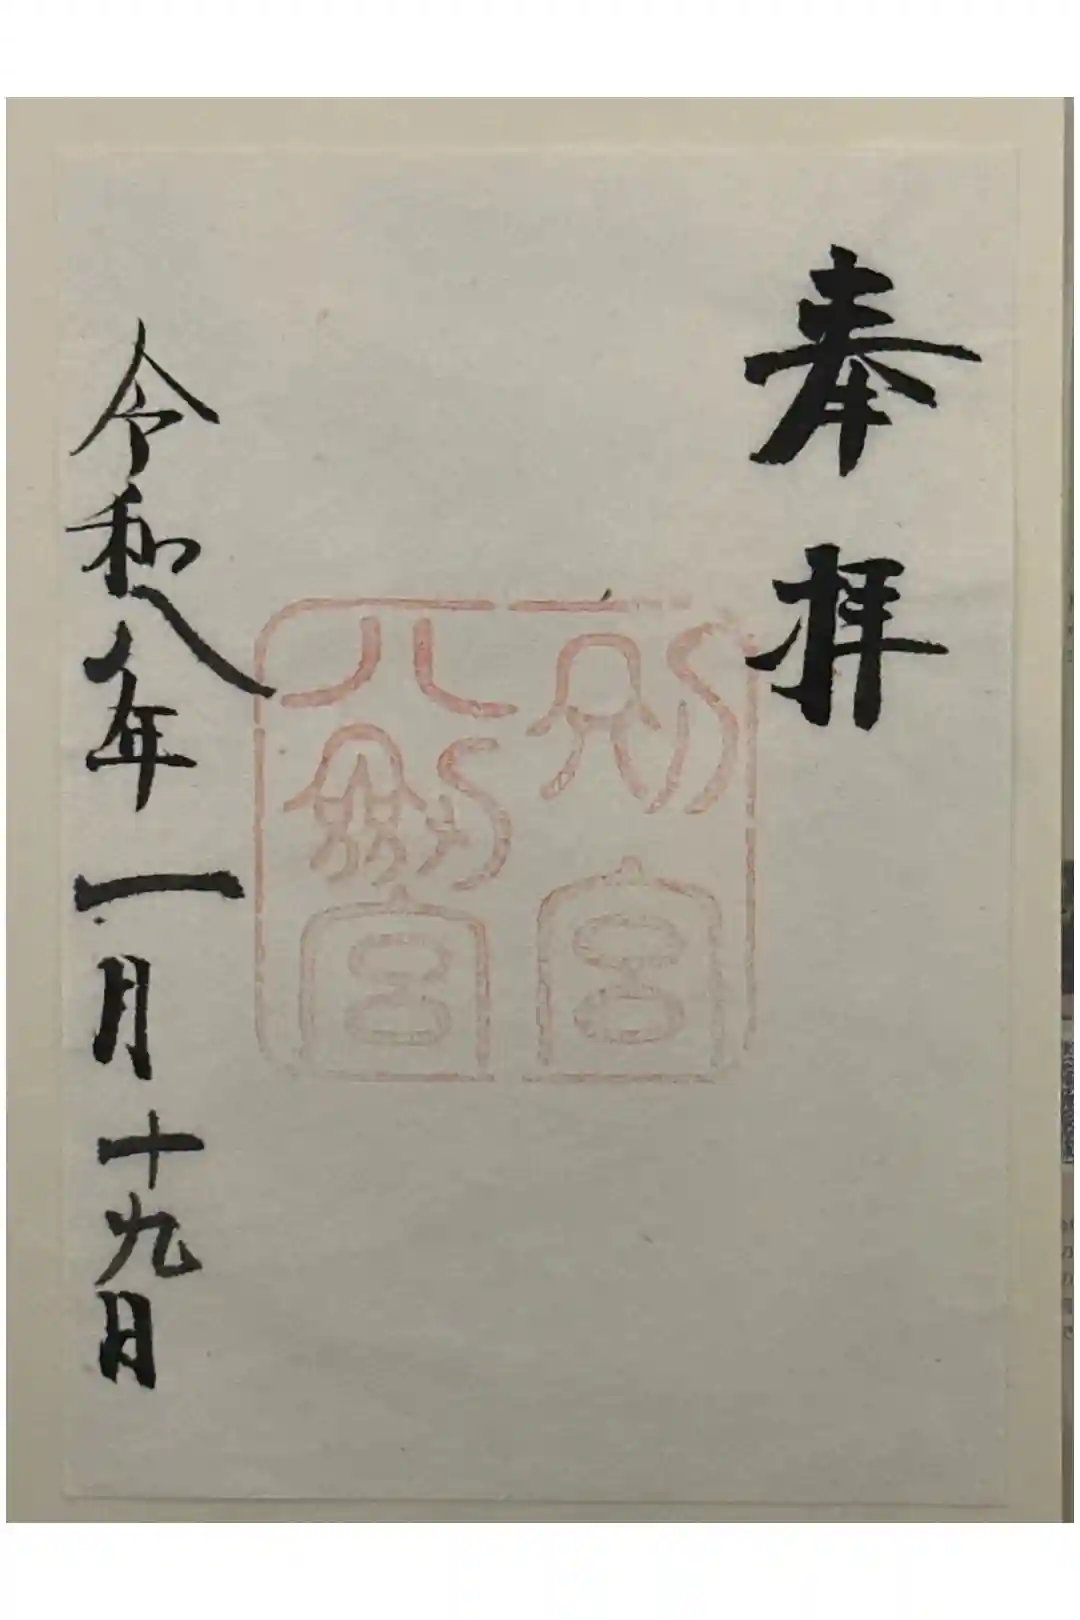 奉拝
別宮
八劔宮
令和八年一月十九日